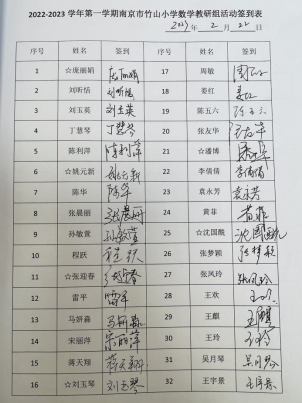 2022-2023 学年第一学期南京市竹山小学数学教研组活动签到表
2023 年 2 月 22 日
序号 姓名 签到 序号 姓名 签到
1 ☆庞丽娟 庞丽娟 17 周敏 周敏
2 刘昕恬 刘昕恬 18 姜红 姜红
3 刘玉英 刘玉英 19 陈五六 陈五六
4 丁慧琴 丁慧琴 20 张友华 张友华
5 陈利萍 陈利萍 21 ☆潘博 潘博
6 ☆姚元新 姚元新 22 李倩倩 李倩倩
7 陈华 陈华 23 袁永芳 袁永芳
8 张晨丽 张晨丽 24 黄菲 黄菲
9 孙敏萱 孙敏萱 25 ☆沈国酰
10 程跃 程跃 26 张梦颖
11 ☆张迎春 张迎春 27 张凤玲 张凤玲
12 雷平 雷平 28 王欢 王欢
13 马妍淼 马妍淼 29 王麒 王麒
14 宋丽萍 宋丽萍 30 王玲 王玲
15 蒋天翔 蒋天翔 31 吴月琴 吴月琴
16 ☆刘玉琴 刘玉琴 32 王宇景 王宇景